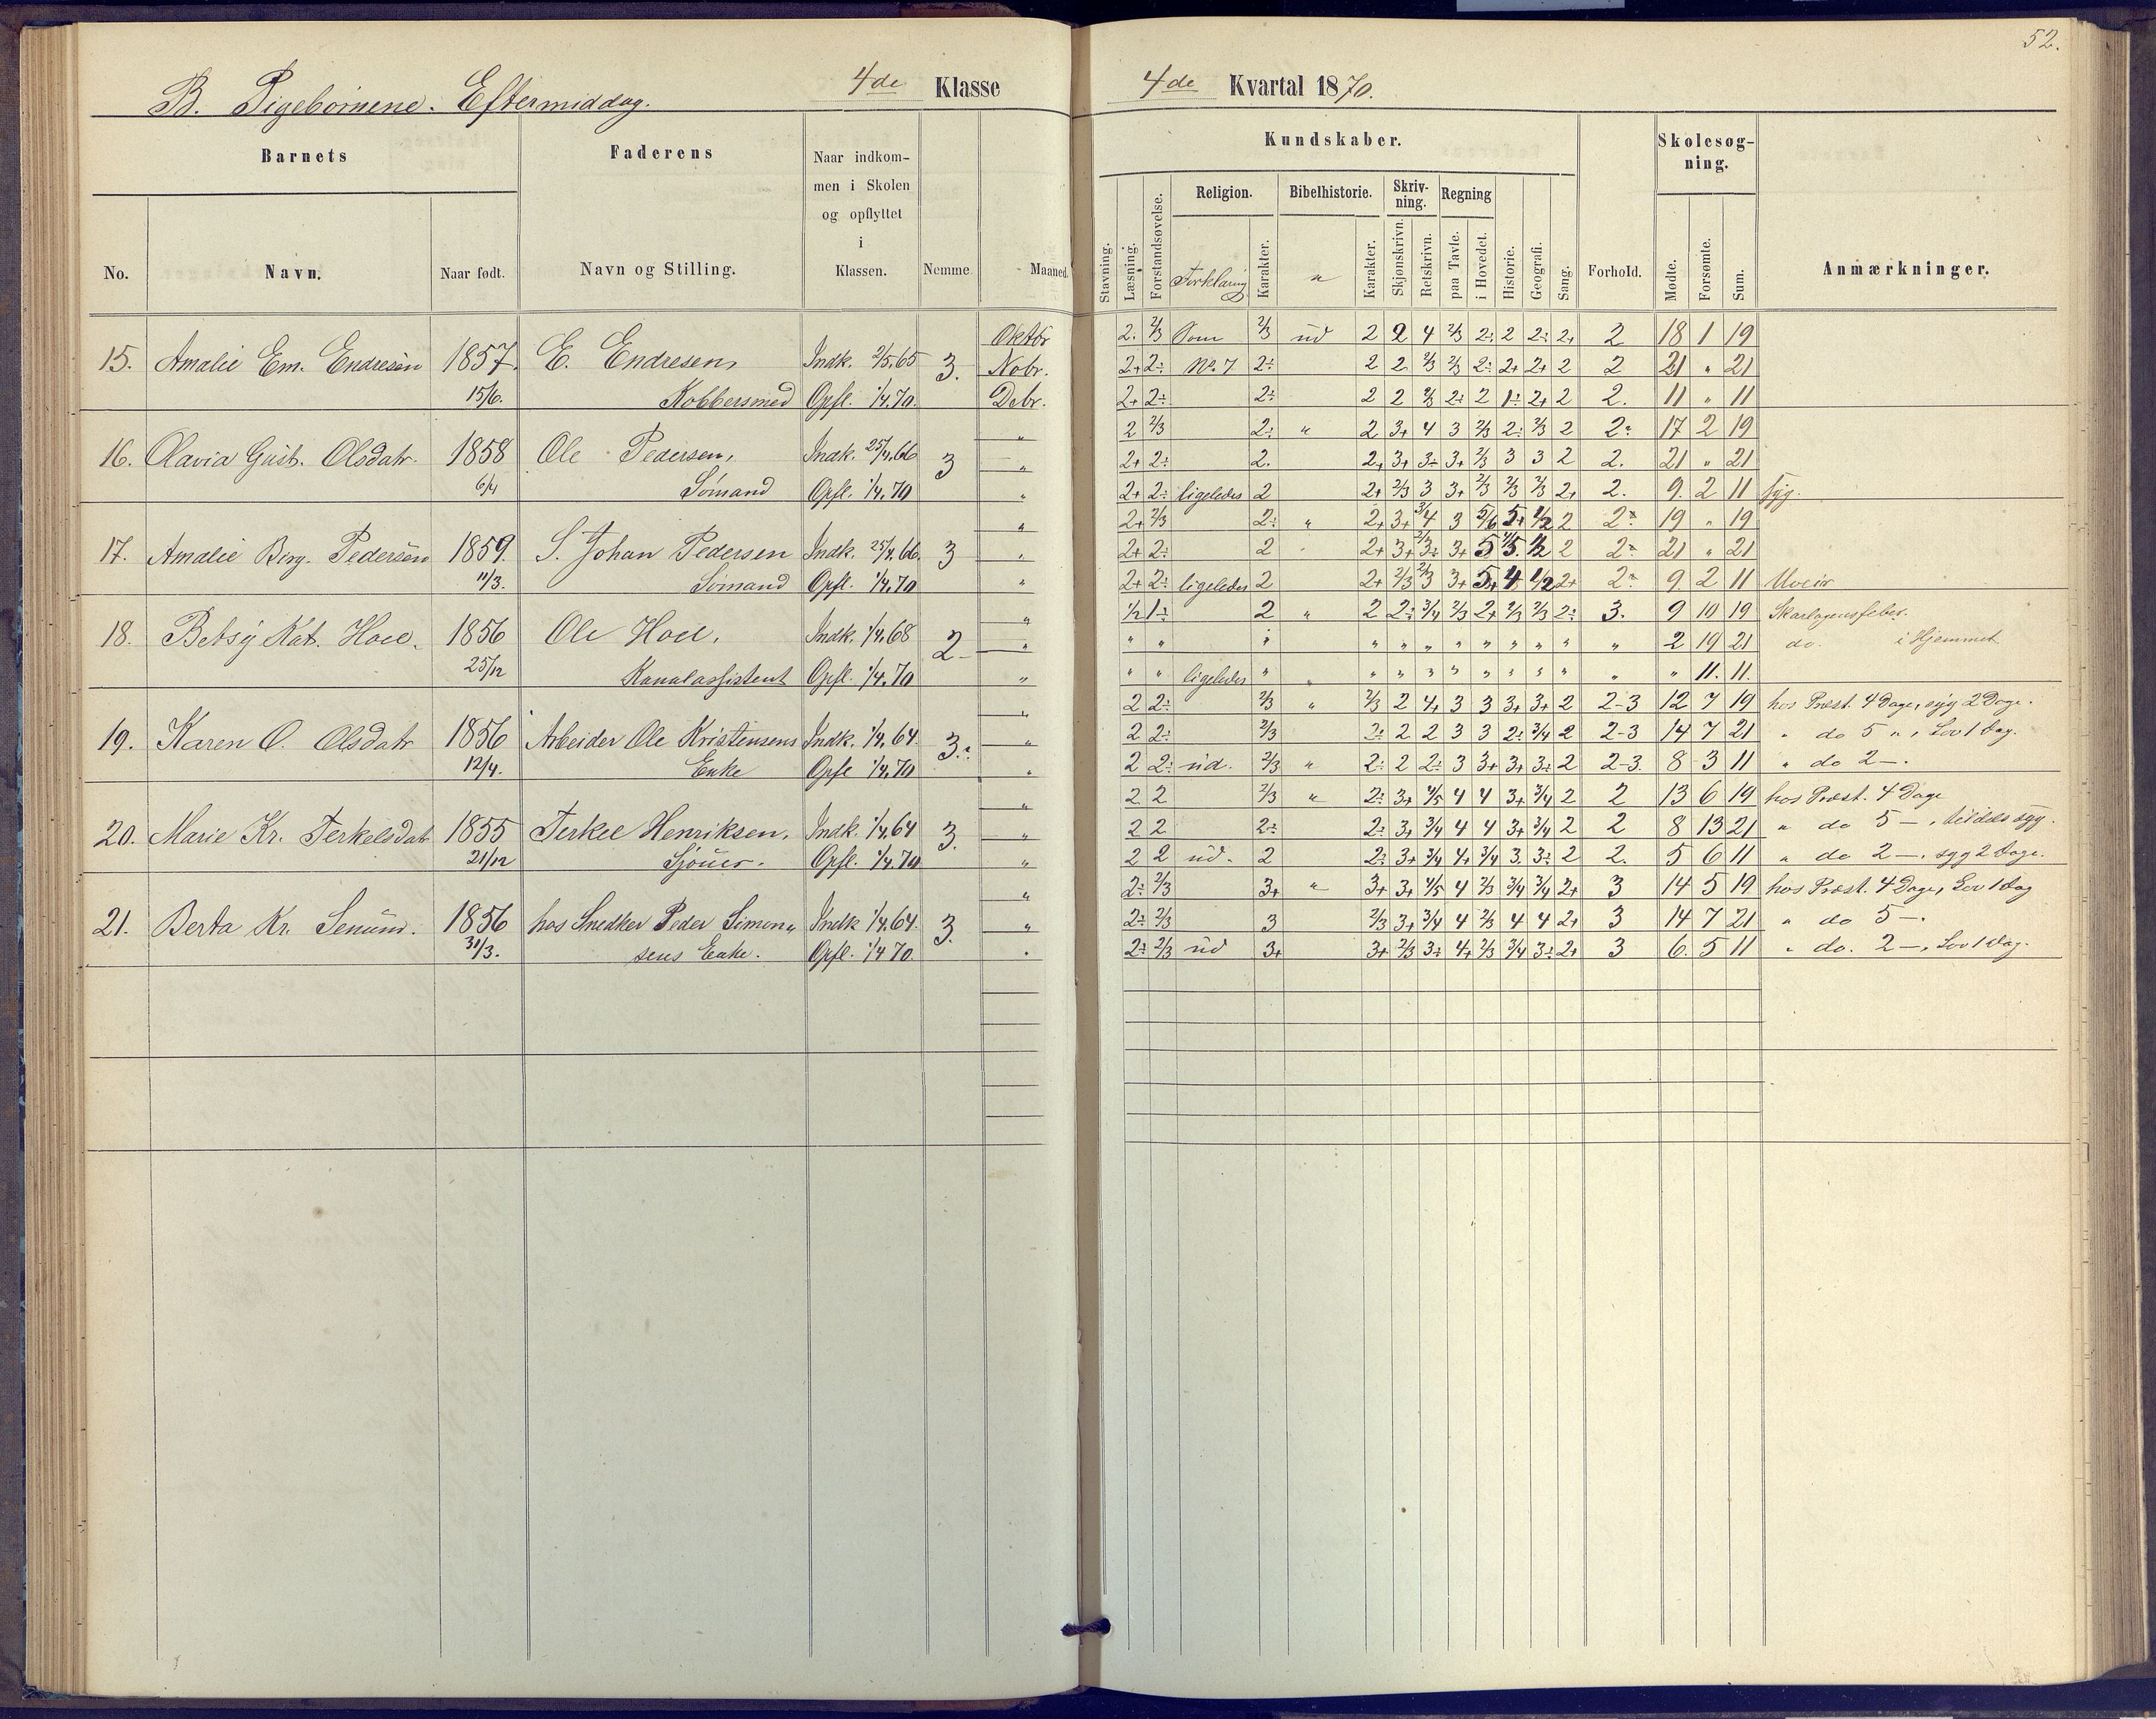 52.
B. Pigebørnene. Eftermiddag. 4de Klasse 4de Kvartal 1870.
Barnets Faderens Naar indkom-men i Skolen og opflyttet i Klassen. Nemme Maaned.
No. Navn. Naar født. Navn og Stilling.
Kundskaber. Skolesøg-ning.
Religion. Bibelhistorie. Skriv-ning. Regning
Stavning. Læsning. Forstandsøvelse. Forklaring Karakter. " Karakter. Skjønskrivn. Retskrivn. paa Tavle. i Hovedet. Historie. Geografi. Sang. Forhold. Mødte. Forsømte. Sum. Anmærkninger.
Oktbr 2. 2/3 Som 2/3 ud 2 2 4 2/3 2: 2 2: 2+ 2 18 1 19
15. Amalie Em. Endresen 1857. E. Endresen, Indk. 2/5.65 3. Nobr. 2+ 2: No. 7 2: 2 2 2/3 2/3 2: 2+ 2+ 2 2 21 " 21
15/6. Kobbersmed Opfl. 1/4.70. Debr. 2+ 2: 2: 2 2 2/3 2: 2 1: 2+ 2 2. 11 " 11
" 2 2/3 2: " 2 3+ 4 3 2/3 2: 2/3 2 2: 17 2 19
16. Olavia Gust. Olsdatr. 1858 Ole Pedersen, Indk. 25/4.66 3 " 2+ 2: 2. 2+ 3+ 3: 3+ 2/3 3 3 2 2. 21 " 21
6/4 Sømand Opfl. 1/4.70 " 2+ 2: ligeledes 2 2+ 2/3 3 3+ 2/3 2/3 2/3 2+ 2. 9. 2 11 syg.
" 2+ 2/3 2: " 2+ 3+ 3/4 3 5/6 5+ 1/2 2 2: 19 " 19
17. Amalie Birg. Pedersen 1859. S. Johan Pedersen Indk. 25/4.66. 3 " 2+ 2: 2 2+ 3+ 3: 3+ 5 5. 1/2 2 2: 21 " 21
11/3. Sømand Opfl. 1/4.70 " 2+ 2: ligeledes 2 2+ 2/3 3 3+ 5+ 4 1/2 2+ 2: 9 2 11 Uveir
" 1/2 1: 2 " 2 2: 3/4 2/3 2+ 2/3 2/3 2: 3. 9 10 19 Skarlagensfeber.
18. Betsy Kat. Hoel. 1856 Ole Hoel, Indk. 1/4.68 2 " " " " " " " " " " " " " 2 19 21 do. i Hjemmet
25/12 Kanalassistent Opfl. 1/4.70 " " " ligeledes " " " " " " " " " " " 11. 11.
" 2 2: 2/3 " 2/3 2 4+ 3 3 3+ 3+ 2 2-3 12 7 19 hos Præst. 4 Dage, syg 2 Dage.
19. Karen O. Olsdatr 1856 Arbeider Ole Kristensens Indk. 1/4.64. 3: " 2 2: 2/3 2: 2 2 3 3 2: 3/4 2 2-3 14 7 21 " do 5 ", Lov 1 Dag.
12/4. Enke Opfl 1/4.70 " 2 2: ud. 2/3 " 2: 2 2: 3 3+ 3+ 3: 2 2-3. 8 3 11 " do 2 —.
" 2 2 2/3 " 2: 3+ 4/5 4 4 3+ 3/4 2 2 13 6 19 hos Præst. 4 Dage
20. Marie Kr. Terkelsdatr 1855 Terkel Henriksen, Indk. 1/4.64 3. " 2 2 2: 2: 3+ 3/4 4 4 3+ 3/4 2 2 8 13 21 " do 5 —, syg.
21/12 Sjouer. Opfl. 1/4.70 " 2 2 ud. 2 2: 3+ 3/4 4+ 3/4 3. 3: 2 2. 5 6 11 " do 2 —, syg 2 Dage.
" 2: 2/3 3+ " 3+ 3+ 4/5 4 2/3 3/4 3/4 2+ 3 14 5 19 hos Præst. 4 Dage, Lov 1 Dag
21. Berta Kr. Semund. 1856 hos Snedker Peder Simon- Indk 1/4.64. 3. " 2: 2/3 3 2/3 3+ 3/4 4 2/3 4 4 2+ 3 14 7 21 " do 5 —.
31/3. sens Enke. Opfl. 1/4 70 " 2: 2/3 ud 3+ 3+ 2/3 3: 4+ 2/3 3/4 3: 2+ 3 6. 5 11 " do. 2 —, Lov 1 Dag.